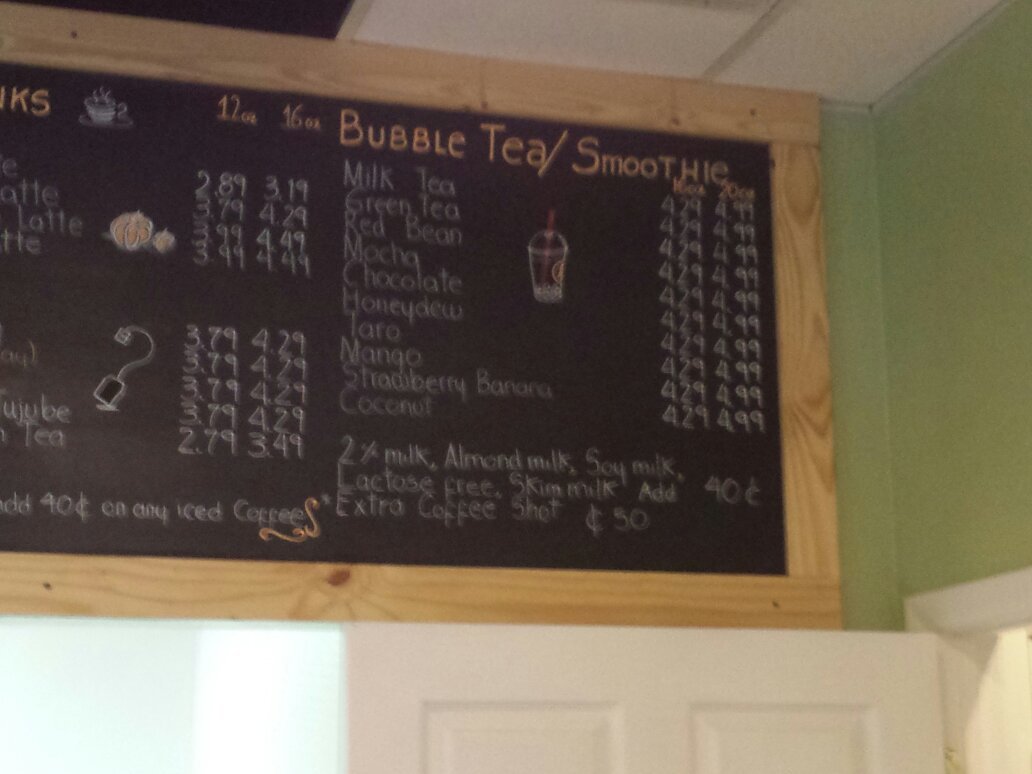 12oz 16oz
2.89 3.19
Latte 3.79 4.29
Latte 3.99 4.49
3.99 4.49
3.79 4.29
3.79 4.29
3.79 4.29
Jujube 3.79 4.29
Tea 2.79 3.49
add 40¢ on any iced Coffees*
Bubble Tea/Smoothie
16oz 20oz
Milk Tea 4.29 4.99
Green Tea 4.29 4.99
Red Bean 4.29 4.99
Mocha 4.29 4.99
Chocolate 4.29 4.99
Honeydew 4.29 4.99
Taro 4.29 4.99
Mango 4.29 4.99
Strawberry Banana 4.29 4.99
Coconut 4.29 4.99
2% milk, Almond milk, Soy milk,
Lactose free, Skim milk Add 40¢
Extra Coffee Shot ¢50